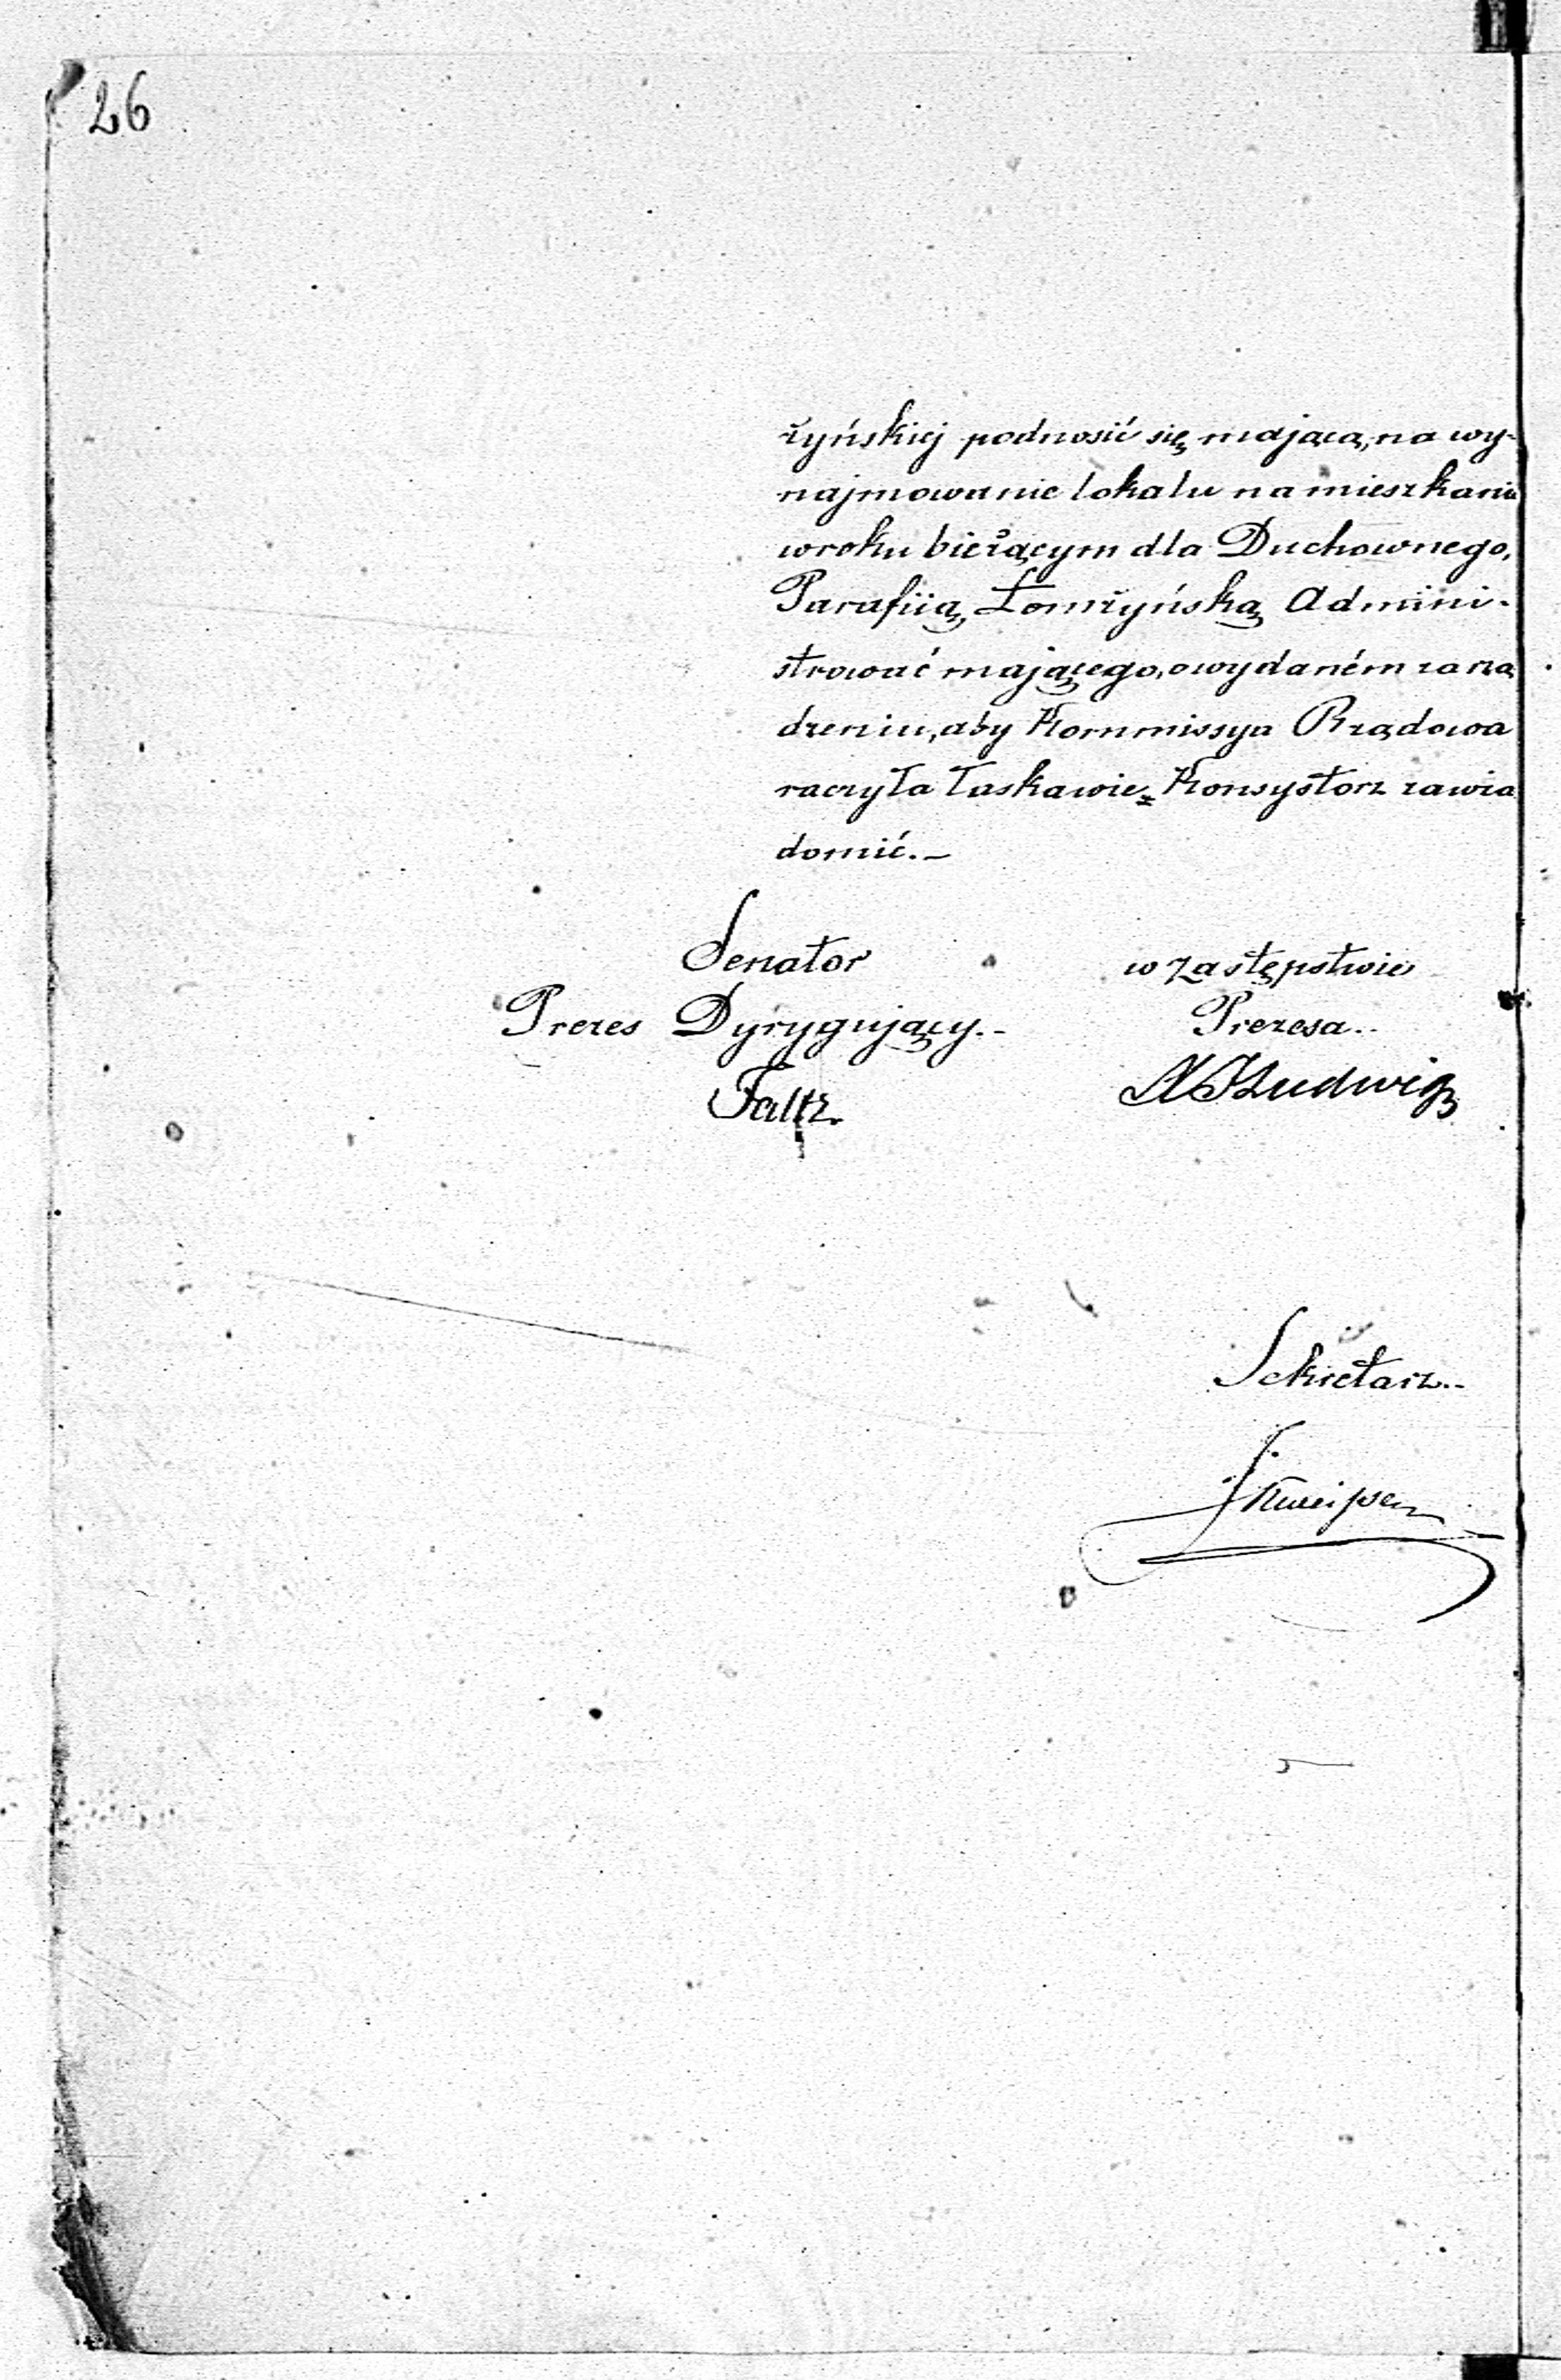 26
żyńskiej podnosić się mającą, na wy-
najmowanie lokalu na mieszkanie
w roku bieżącym dla Duchownego,
Parafiią Łomżyńską Admini-
strować mającego, o wydaném zarzą
dzeniu, aby Kommissya Rządowa
raczyła łaskawie Konsystorz zawia
domić. —
Senator w zastępstwie
Prezes Dyrygujący. - Prezesa. -
Faltz. Ludwig
Sekretarz. -